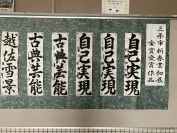 三条市新春書初展
金賞受賞作品
自己実現
自己実現
自己実現
古典芸能
古典芸能
越佐雪景